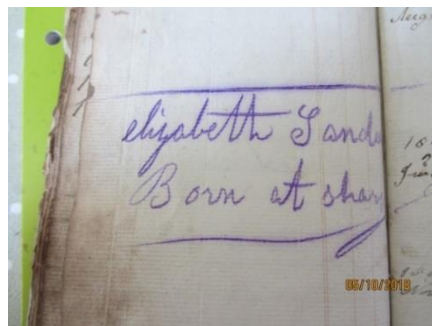 Aug
elizabeth Sanda
Born at shar
05/10/2018